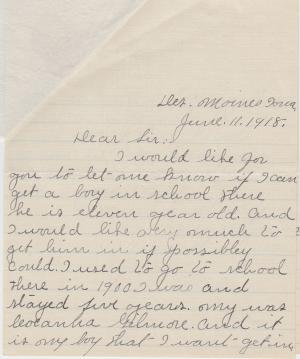 Des. Moines Iowa
June. 11. 1918.
Dear Sir:
I would like for
you to let me know if I can
get a boy in school there
he is eleven year old. and
I would like very much to
get him in if possibley
could. I used to go to school
there in 1900 I was and
stayed five years. my was
leoeanna Gilmore. and it
is my boy that I want get in